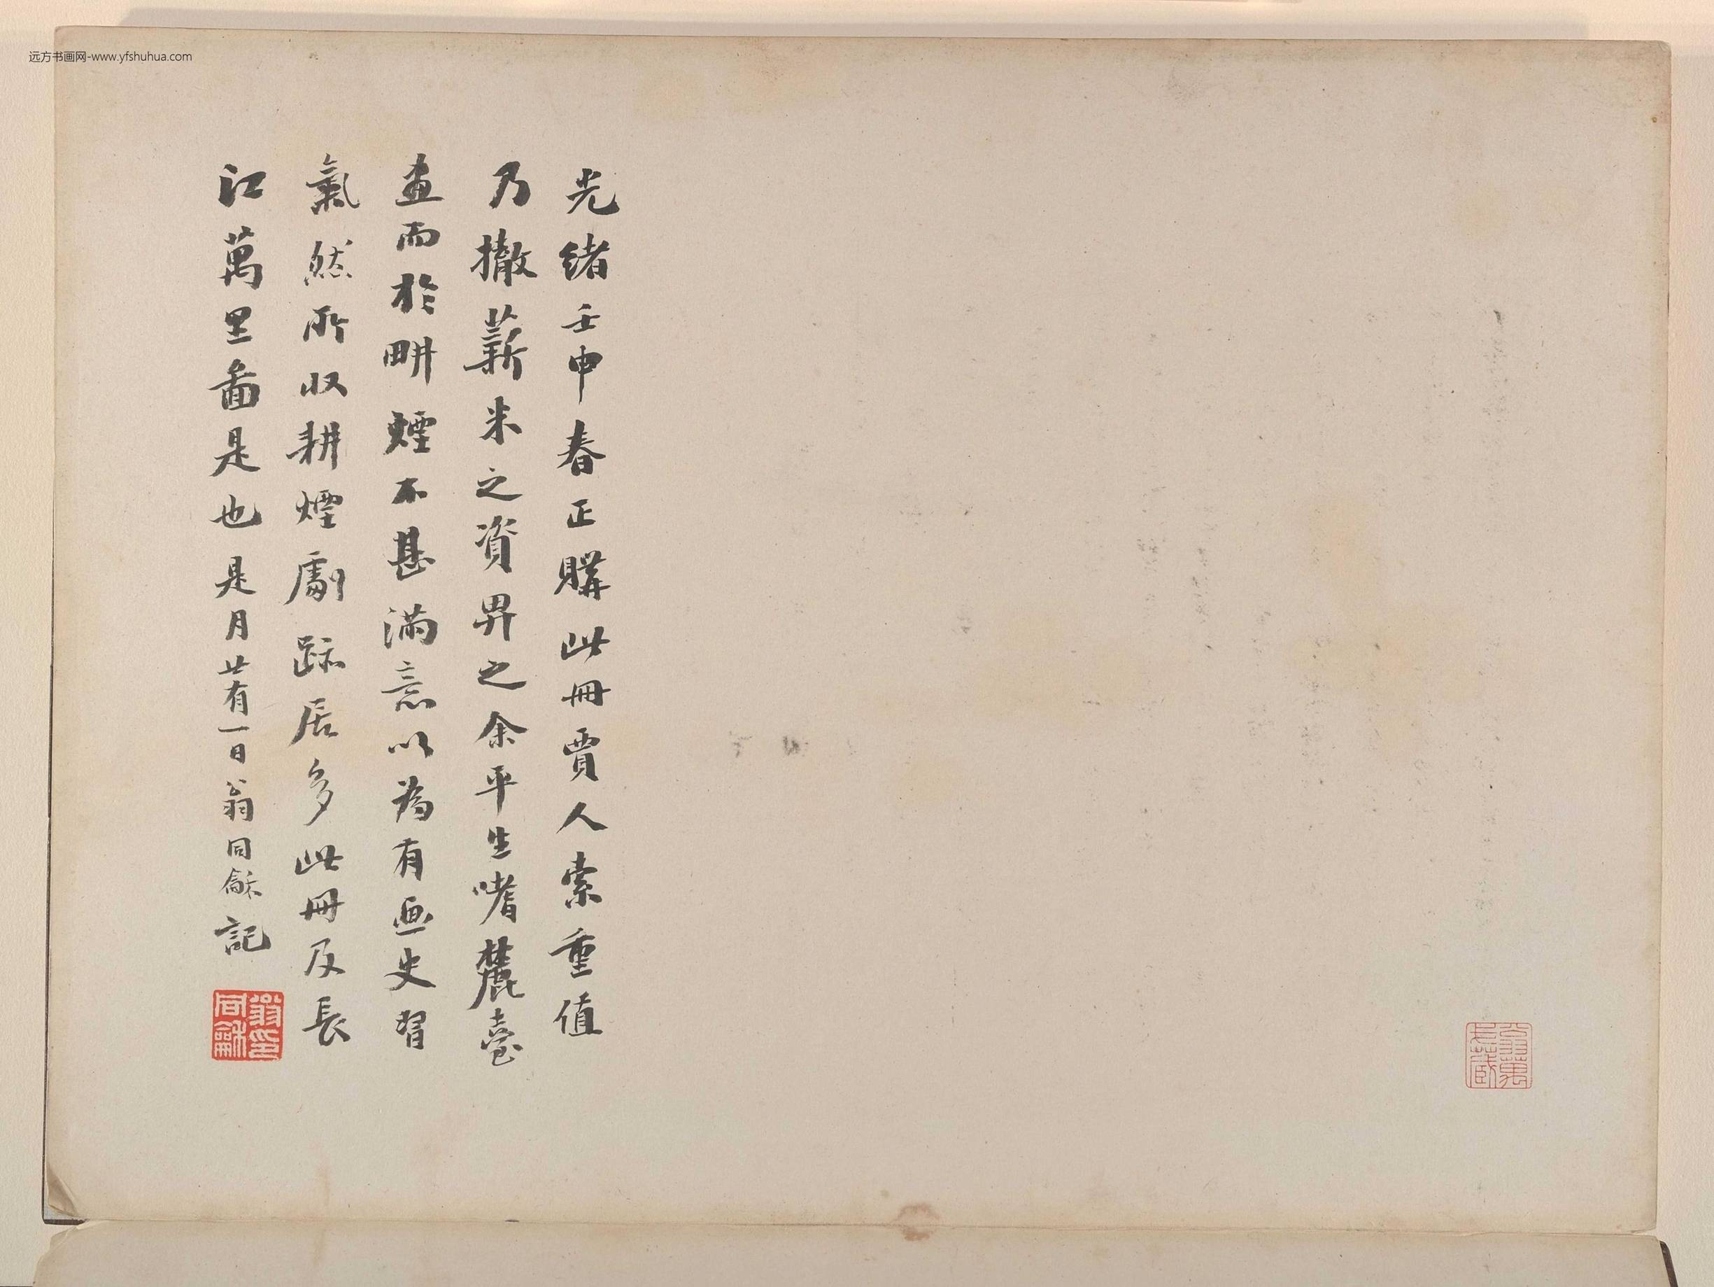 远方书画网-www.yfshuhua.com
光緒壬申春正購此冊賈人索重值
乃撤薪米之資畀之余平生嗜麓臺
畫而於畊煙不甚滿意以為有画史習
氣然所収耕煙劇跡居多此冊及長
江萬里啚是也是月廿有一日翁同龢記
翁同龢印
翁萬戈藏